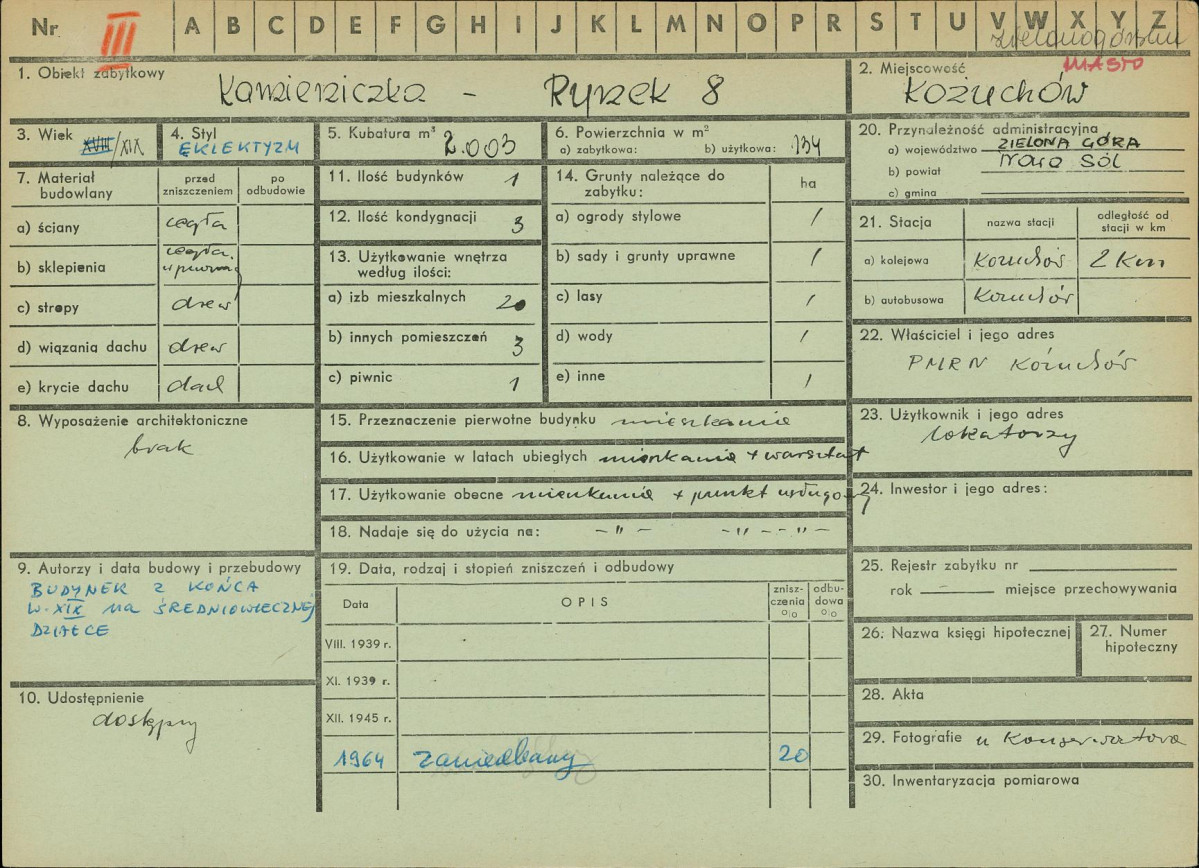 Nr III A B C D E F G H I J K L M N O P R S T U V W X Y Z
zielonogórskie
MIASTO
1. Obiekt zabytkowy
Kamieniczka – Rynek 8
2. Miejscowość
KOŻUCHÓW
3. Wiek XVIII/XIX
4. Styl
EKLEKTYZM
5. Kubatura m³ 2.003
6. Powierzchnia w m²
a) zabytkowa: b) użytkowa: 134
20. Przynależność administracyjna
a) województwo ZIELONA GÓRA
b) powiat Nowa Sól
c) gmina
7. Materiał budowlany
przed zniszczeniem
po odbudowie
a) ściany cegła
b) sklepienia cegła
c) stropy drew
d) wiązania dachu drew
e) krycie dachu dach
11. Ilość budynków 1
12. Ilość kondygnacji 3
13. Użytkowanie wnętrza
według ilości:
a) izb mieszkalnych 20
b) innych pomieszczeń 3
c) piwnic 1
14. Grunty należące do
zabytku:
ha
a) ogrody stylowe /
b) sady i grunty uprawne /
c) lasy /
d) wody /
e) inne /
21. Stacja
nazwa stacji
odległość od
stacji w km
a) kolejowa Kożuchów 2 km
b) autobusowa Kożuchów
22. Właściciel i jego adres
PMRN Kożuchów
8. Wyposażenie architektoniczne
brak
15. Przeznaczenie pierwotne budynku mieszkanie
16. Użytkowanie w latach ubiegłych mieszkanie + warsztat
17. Użytkowanie obecne mieszkanie + punkt usługowy
18. Nadaje się do użycia na: – " – – " – – " –
23. Użytkownik i jego adres
lokatorzy
24. Inwestor i jego adres:
9. Autorzy i data budowy i przebudowy
BUDYNEK Z KOŃCA
W. XIX NA ŚREDNIOWIECZNEJ
DZIAŁCE
19. Data, rodzaj i stopień zniszczeń i odbudowy
Data
OPIS
znisz-
czenia
%
odbu-
dowa
%
VIII. 1939 r.
XI. 1939 r.
XII. 1945 r.
1964 zaniedbany 20
25. Rejestr zabytku nr
rok miejsce przechowywania
26. Nazwa księgi hipotecznej
27. Numer
hipoteczny
10. Udostępnienie
dostępny
28. Akta
29. Fotografie u Konserwatora
30. Inwentaryzacja pomiarowa